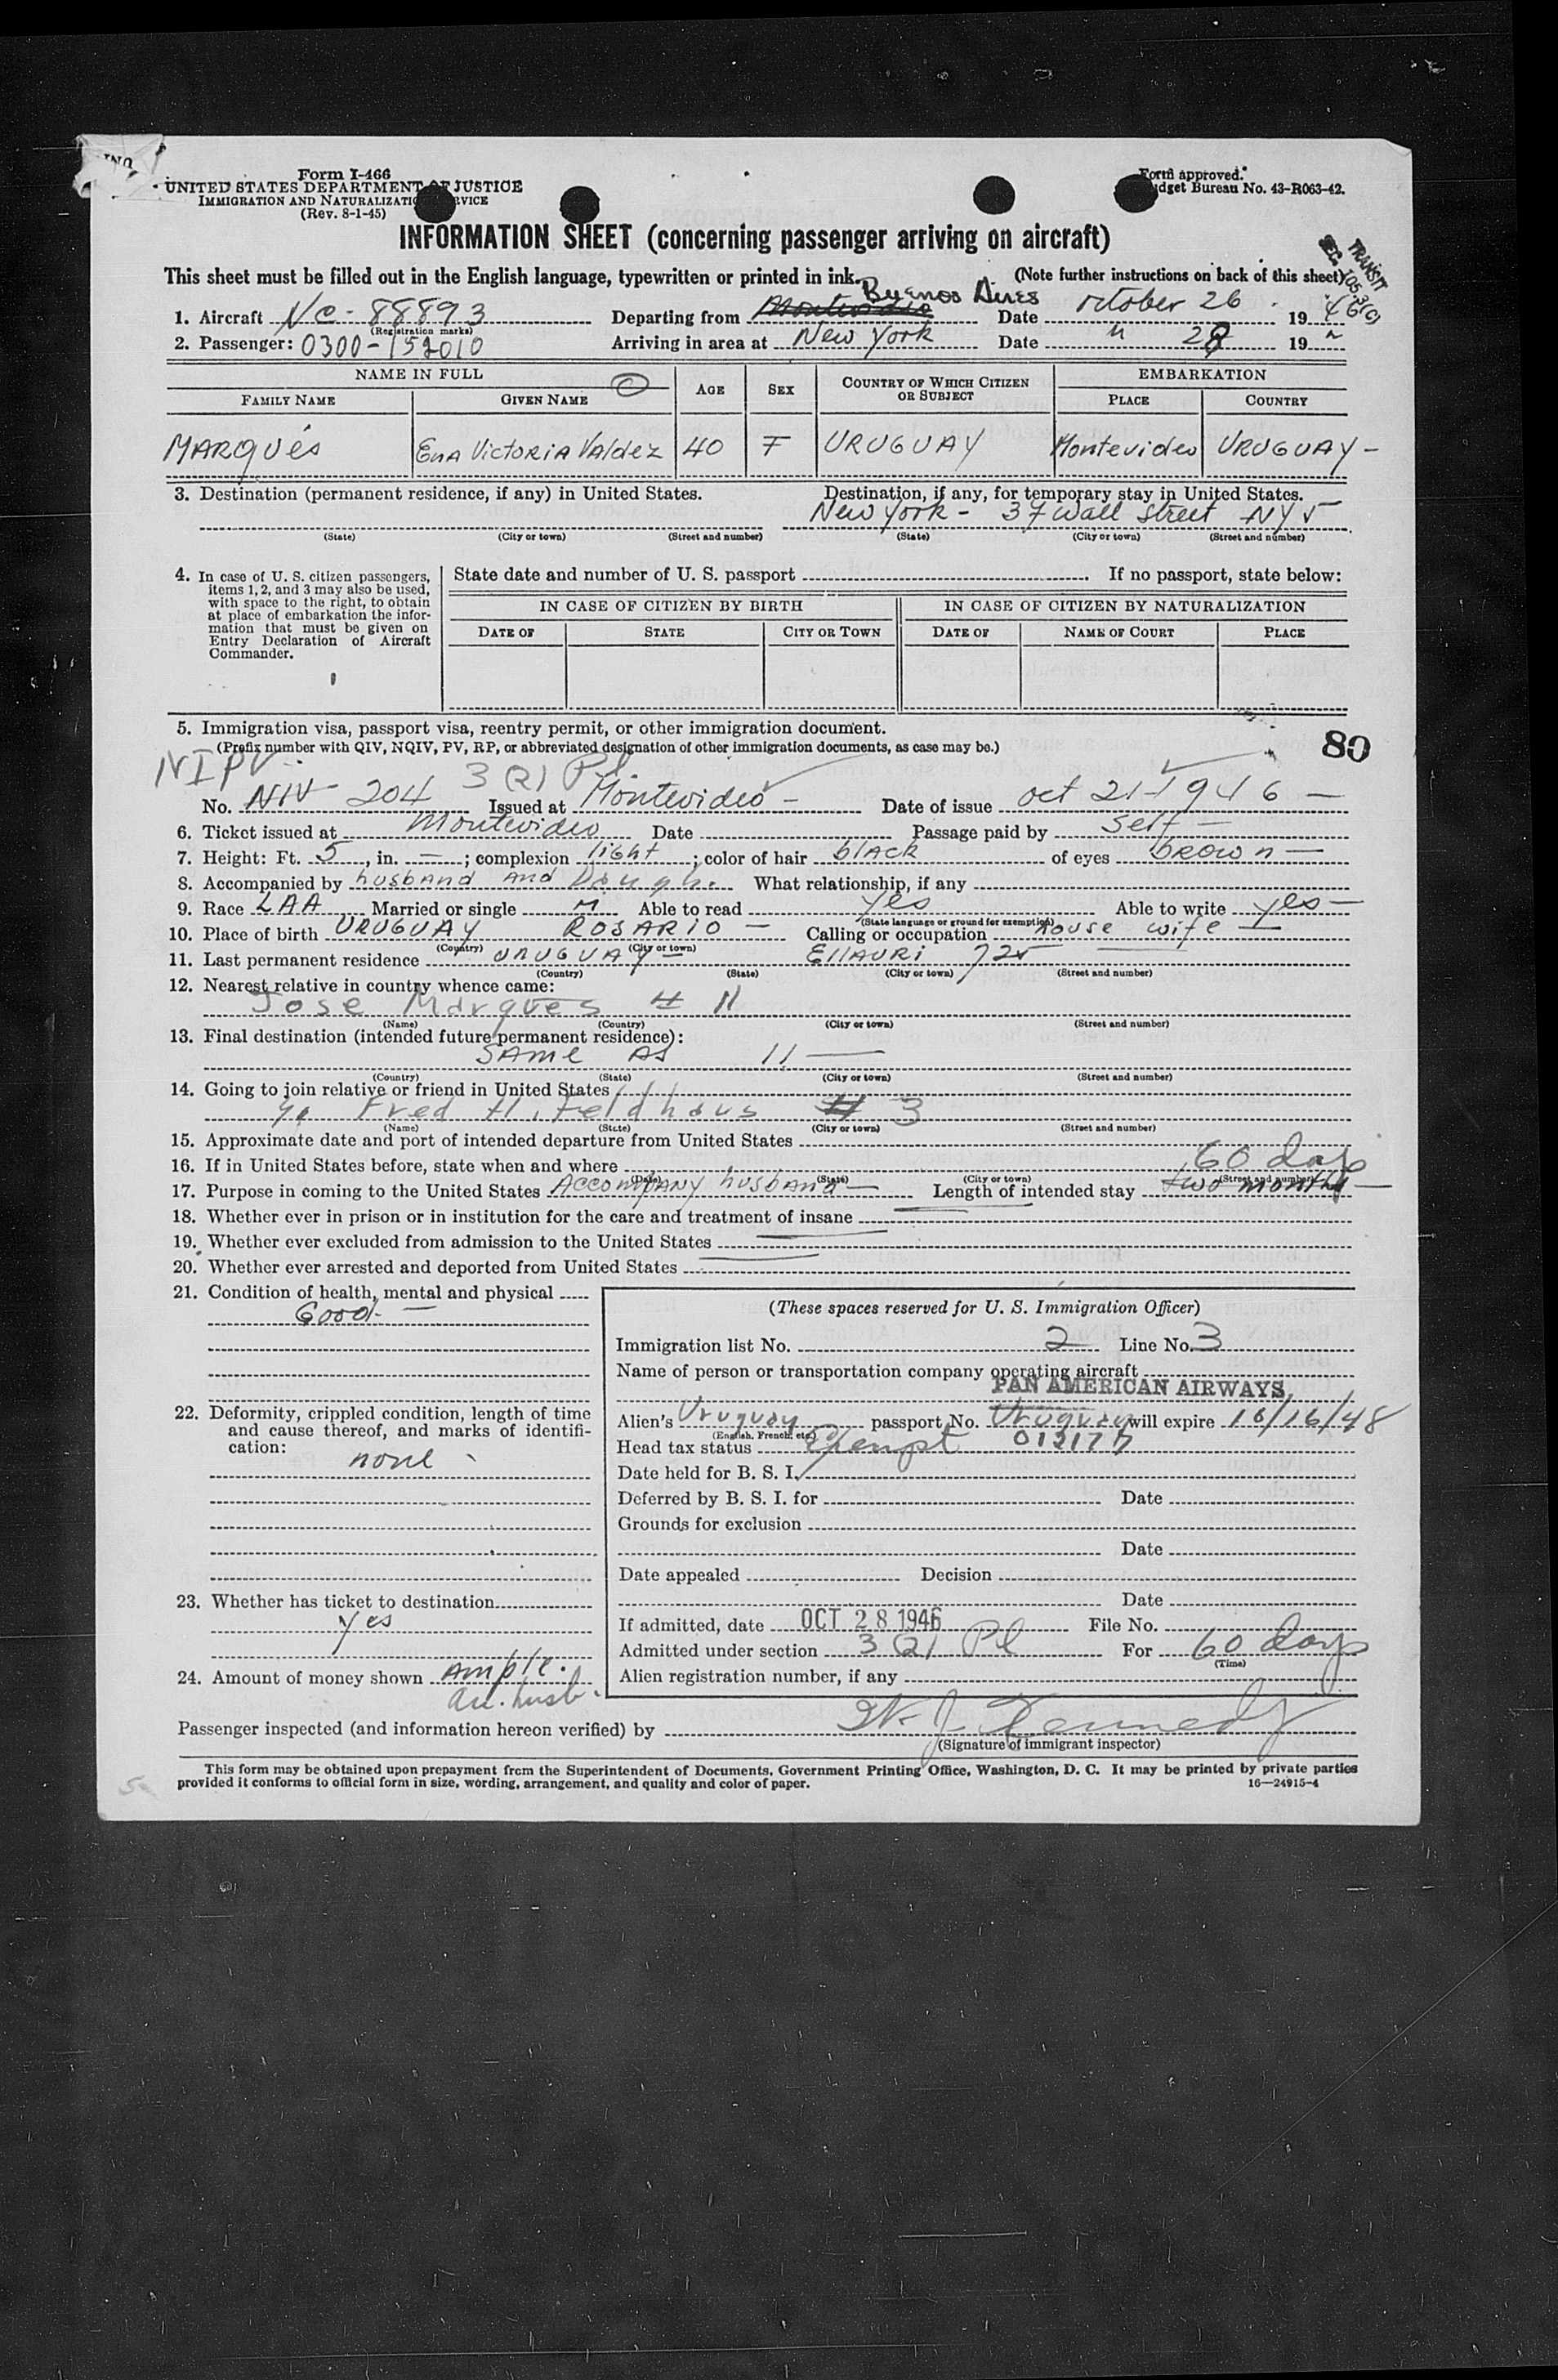 Form I-466
UNITED STATES DEPARTMENT OF JUSTICE
IMMIGRATION AND NATURALIZATION SERVICE
(Rev. 8-1-45)
Form approved.
Budget Bureau No. 43-R063-42.
INFORMATION SHEET (concerning passenger arriving on aircraft)
TRANSIT
This sheet must be filled out in the English language, typewritten or printed in ink. (Note further instructions on back of this sheet)
Buenos Aires
1. Aircraft NC-88893 Departing from Montevideo Date October 26 1946
(Registration marks)
2. Passenger: 0300-152010 Arriving in area at New York Date " 28 19 "
NAME IN FULL AGE SEX COUNTRY OF WHICH CITIZEN OR SUBJECT EMBARKATION
FAMILY NAME GIVEN NAME PLACE COUNTRY
MARQUéS ENA VICTORIA VALdez 40 F URUGUAY Montevideo URUGUAY -
3. Destination (permanent residence, if any) in United States. Destination, if any, for temporary stay in United States.
New York - 37 Wall Street NY 5
(State) (City or town) (Street and number) (State) (City or town) (Street and number)
4. In case of U. S. citizen passengers, items 1, 2, and 3 may also be used, with space to the right, to obtain at place of embarkation the information that must be given on Entry Declaration of Aircraft Commander.
State date and number of U. S. passport If no passport, state below:
IN CASE OF CITIZEN BY BIRTH IN CASE OF CITIZEN BY NATURALIZATION
DATE OF STATE CITY OR TOWN DATE OF NAME OF COURT PLACE
5. Immigration visa, passport visa, reentry permit, or other immigration document.
(Prefix number with QIV, NQIV, PV, RP, or abbreviated designation of other immigration documents, as case may be.)
80
NIPV 3(2) Pl
No. NIV- 204 Issued at Montevideo - Date of issue oct 21-1946 -
6. Ticket issued at Montevideo Date Passage paid by Self -
7. Height: Ft. 5, in. -; complexion light; color of hair black of eyes brown -
8. Accompanied by husband and Daugh. What relationship, if any
9. Race LAA Married or single M Able to read yes Able to write yes -
(State language or ground for exemption)
10. Place of birth URUGUAY ROSARIO - Calling or occupation House wife -
(Country) (City or town)
11. Last permanent residence URUGUAY - Ellauri 725
(Country) (State) (City or town) (Street and number)
12. Nearest relative in country whence came:
Jose Marques # 11
(Name) (Country) (City or town) (Street and number)
13. Final destination (intended future permanent residence):
SAME AS 11 -
(Country) (State) (City or town) (Street and number)
14. Going to join relative or friend in United States
c/o Fred H. Feldhaus # 3
(Name) (State) (City or town) (Street and number)
15. Approximate date and port of intended departure from United States
16. If in United States before, state when and where
(Date) (State) (City or town) (Street and number)
60 days
17. Purpose in coming to the United States Accompany husband - Length of intended stay two months -
18. Whether ever in prison or in institution for the care and treatment of insane
19. Whether ever excluded from admission to the United States
20. Whether ever arrested and deported from United States
21. Condition of health, mental and physical
Good -
22. Deformity, crippled condition, length of time and cause thereof, and marks of identification:
none
23. Whether has ticket to destination
yes
24. Amount of money shown Ample.
acc. husb.
(These spaces reserved for U. S. Immigration Officer)
Immigration list No. 2 Line No. 3
Name of person or transportation company operating aircraft
PAN AMERICAN AIRWAYS,
Alien's Uruguay passport No. Uruguay will expire 10/16/48
(English, French, etc.)
Head tax status Exempt 013177
Date held for B. S. I.
Deferred by B. S. I. for Date
Grounds for exclusion
Date
Date appealed Decision
Date
If admitted, date OCT 28 1946 File No.
Admitted under section 3(2) Pl For 60 days
(Time)
Alien registration number, if any
Passenger inspected (and information hereon verified) by W. J. Kennedy
(Signature of immigrant inspector)
This form may be obtained upon prepayment from the Superintendent of Documents, Government Printing Office, Washington, D. C. It may be printed by private parties
provided it conforms to official form in size, wording, arrangement, and quality and color of paper. 16—24915-4